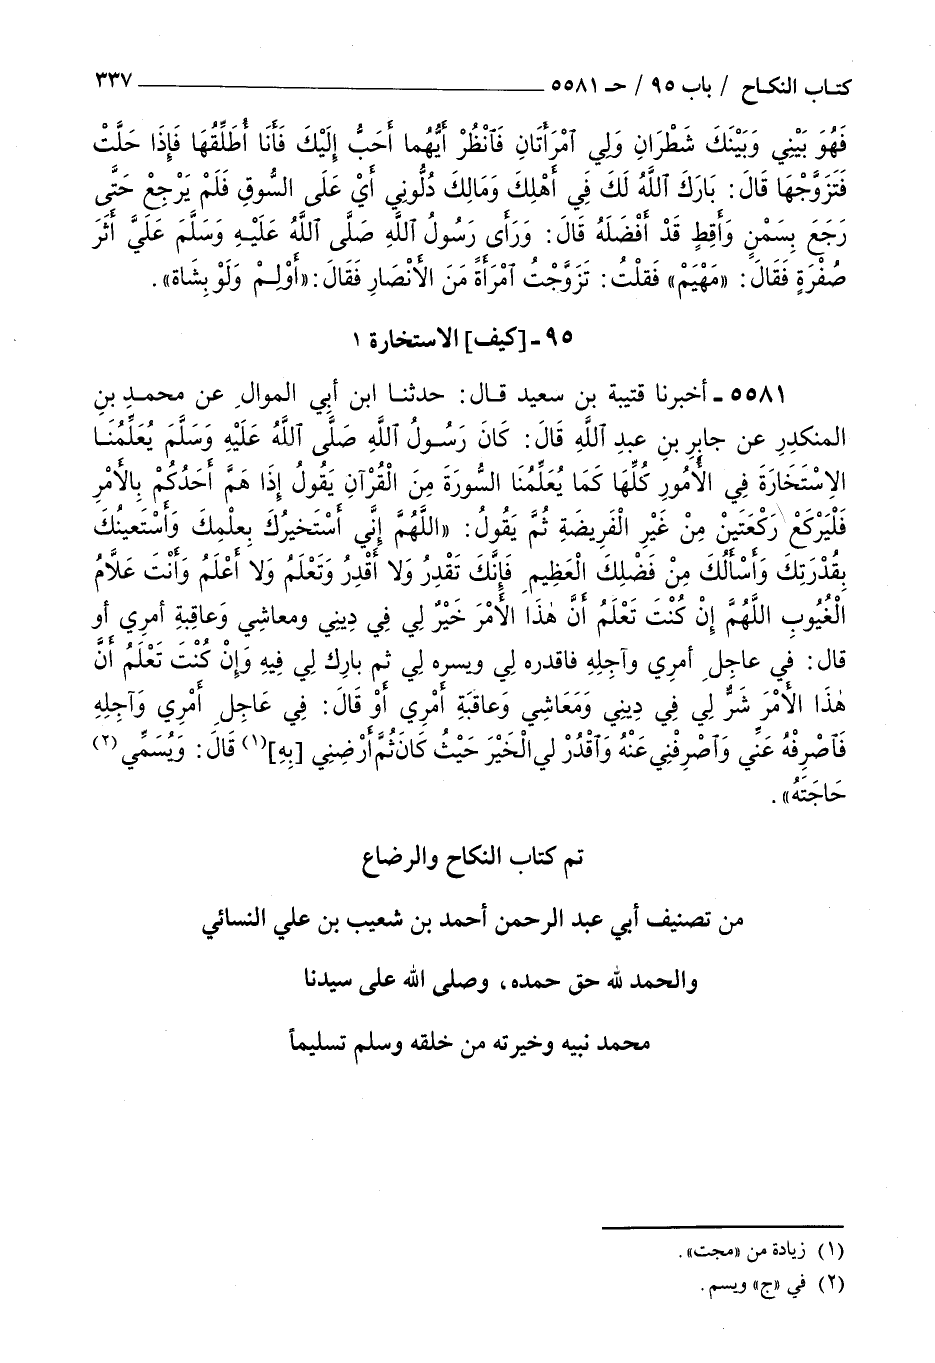 كتاب النكاح / باب ٩٥ / حـ ٥٥٨١ ٣٣٧
فَهُوَ بَيْنِي وَبَيْنَكَ شَطْرَانِ وَلِي ٱمْرَأَتَانِ فَٱنْظُرْ أَيُّهُما أَحَبُّ إِلَيْكَ فَأَنَا أُطَلِّقُهَا فَإِذَا حَلَّتْ
فَتَزَوَّجْهَا قَالَ: بَارَكَ ٱللَّهُ لَكَ فِي أَهْلِكَ وَمَالِكَ دُلُّونِي أَيْ عَلَى السُّوقِ فَلَمْ يَرْجِعْ حَتَّى
رَجَعَ بِسَمْنٍ وَأَقِطٍ قَدْ أَفْضَلَهُ قَالَ: وَرَأَى رَسُولُ ٱللَّهِ صَلَّى ٱللَّهُ عَلَيْهِ وَسَلَّمَ عَلَيَّ أَثَرَ
صُفْرَةٍ فَقَالَ: «مَهْيَمْ» فَقلْتُ: تَزَوَّجْتُ ٱمْرَأَةً مَنَ الأَنْصَارِ فَقَالَ: «أَوْلِمْ وَلَوْ بِشَاة».
٩٥ - [كيف] الاستخارة ١
٥٥٨١ - أخبرنا قتيبة بن سعيد قال: حدثنا ابن أبي الموالِ عن محمدِ بنِ
المنكدِرِ عن جابِرِ بنِ عبدِ ٱللَّهِ قَالَ: كَانَ رَسُولُ ٱللَّهِ صَلَّى ٱللَّهُ عَلَيْهِ وَسَلَّمَ يُعَلِّمُنَا
الإسْتَخَارَةَ فِي الأُمُورِ كُلِّهَا كَمَا يُعَلِّمُنَا السُّورَةَ مِنَ الْقُرْآنِ يَقُولُ إِذَا هَمَّ أَحَدُكُمْ بِالأَمْرِ
فَلْيَرْكَعْ رَكْعَتَيْنْ مِنْ غَيْرِ الْفَرِيضَةِ ثُمَّ يَقُولُ: «اللَّهُمَّ إِنِّي أَسْتَخيرُكَ بِعلْمِكَ وَأَسْتَعينُكَ
بِقُدْرَتِكَ وَأَسْأَلُكَ مِنْ فَضْلِكَ الْعَظِيمِ فَإِنَّكَ تَقْدِرُ وَلا أَقْدِرُ وَتَعْلَمُ وَلا أَعْلَمُ وَأَنْتَ عَلاَّمُ
الْغُيُوبِ اللَّهُمَّ إِنْ كُنْتَ تَعْلَمُ أَنَّ هٰذَا الأَمْرَ خَيْرٌ لِي فِي دِيني ومعاشي وَعاقِبةِ أمري أو
قال: في عاجلِ أمرِي وآجِلِهِ فاقدره لِي ويسره لِي ثم بارِك لِي فِيهِ وَإِنْ كُنْتَ تَعْلَمُ أَنَّ
هٰذَا الأَمْرَ شَرٌّ لِي فِي دِينِي وَمَعَاشِي وَعاقِبَةِ أَمْرِي أَوْ قَالَ: فِي عَاجِلِ أَمْرِي وَآجِلِهِ
فَٱصْرِفْهُ عَنِّي وَٱصْرِفْنِي عَنْهُ وَٱقْدُرْ لِي الْخَيْرَ حَيْثُ كَانَ ثُمَّ أَرْضِنِي [بِهِ](١) قَالَ: وَيُسَمِّي(٢)
حَاجَتَهُ».
تم كتاب النكاح والرضاع
من تصنيف أبي عبد الرحمن أحمد بن شعيب بن علي النسائي
والحمد لله حق حمده، وصلى الله على سيدنا
محمد نبيه وخيرته من خلقه وسلم تسليماً
(١) زيادة من «مجت».
(٢) في «ج» ويسم.